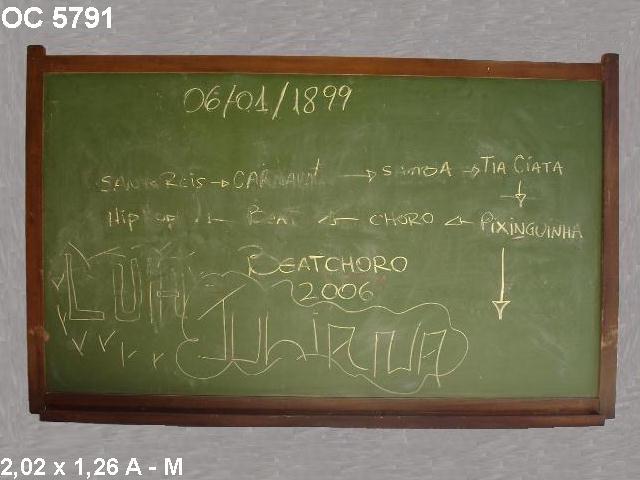 OC 5791
06/01/1899
SANTO REIS → CARNAVAL → SAMBA → TIA CIATA
↓
HIP HOP ← BEAT ← CHORO ← PIXINGUINHA
↓
BEATCHORO
2006
LUA
JULIANA
2,02 x 1,26 A - M